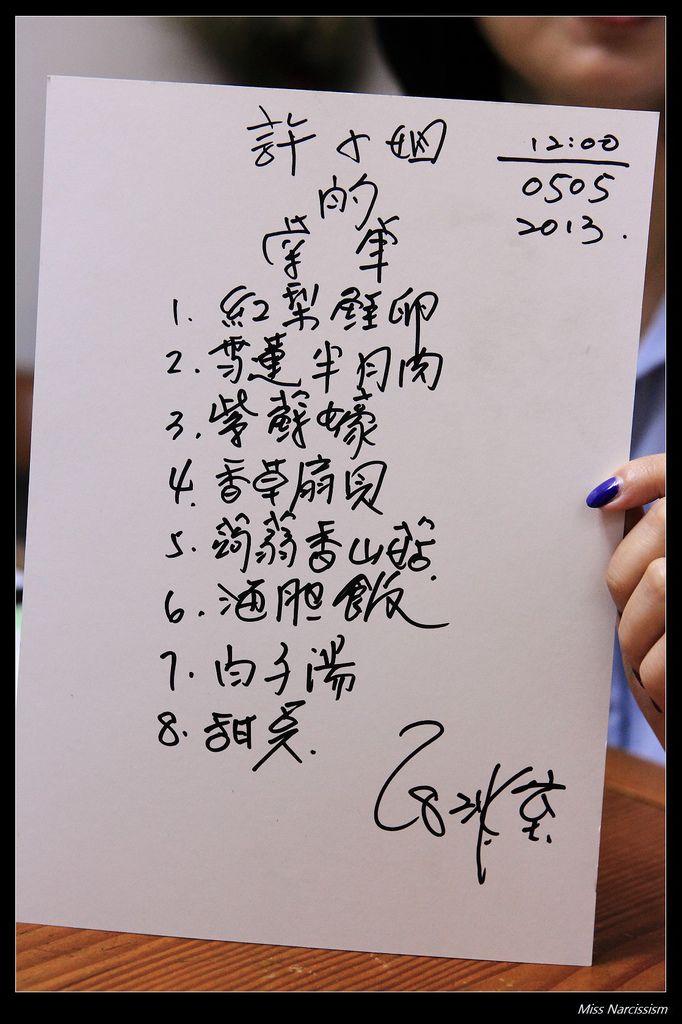 許小姐
的
菜單
12:00
0505
2013.
1. 紅梨鮭卵
2. 雪蓮半月肉
3. 紫蘇蠔
4. 香草扇貝
5. 蒟蒻香山菇
6. 海胆飯
7. 白子湯
8. 甜点.
Miss Narcissism